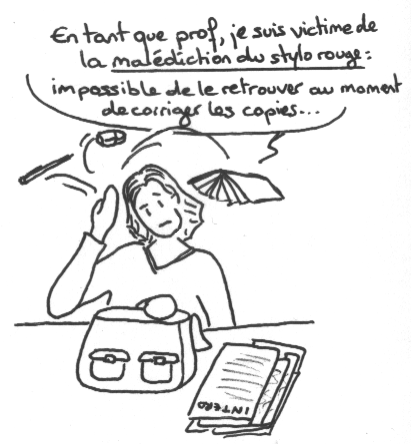 En tant que prof, je suis victime de
la malédiction du stylo rouge :
impossible de le retrouver au moment
de corriger les copies...
INTERO